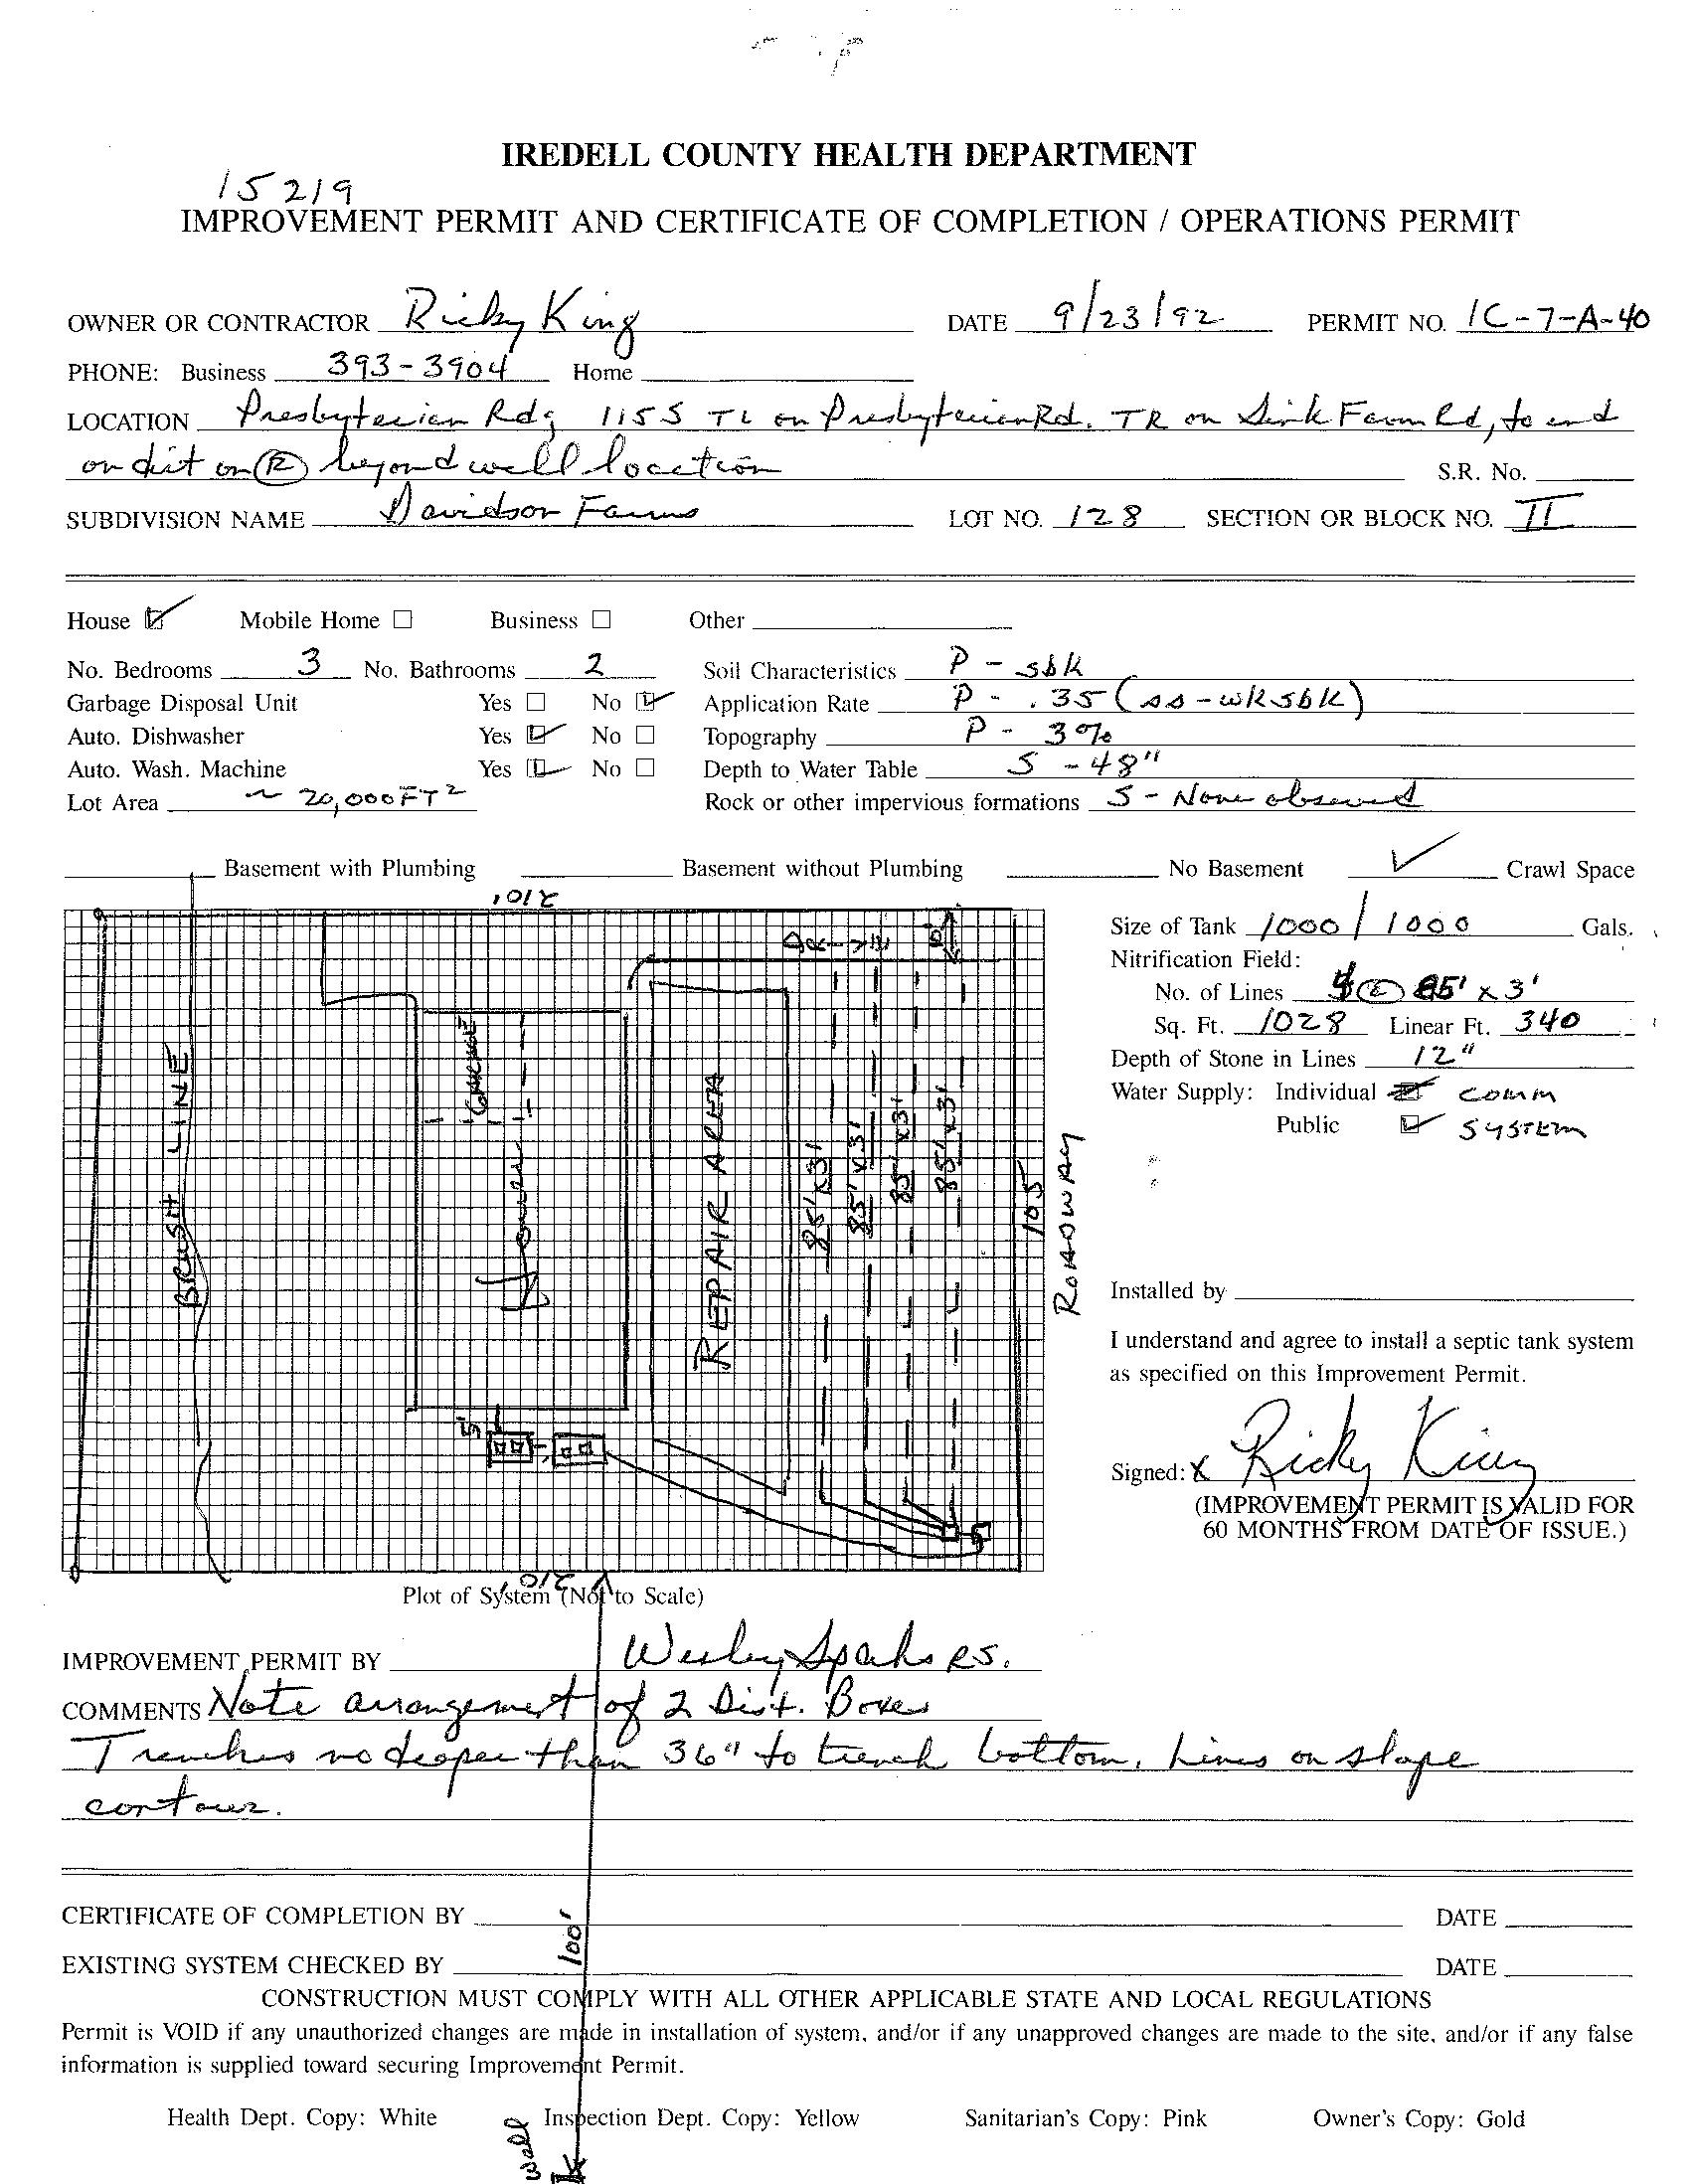 IREDELL COUNTY HEALTH DEPARTMENT
15219
IMPROVEMENT PERMIT AND CERTIFICATE OF COMPLETION / OPERATIONS PERMIT
OWNER OR CONTRACTOR Ricky King DATE 9/23/92 PERMIT NO. 1C-7-A-40
PHONE: Business 393-3904 Home
LOCATION Presbyterian Rd; 115S TL on Presbyterian Rd. TR on Sink Farm Rd, to end
on dirt on (R) beyond well location S.R. No.
SUBDIVISION NAME Davidson Farms LOT NO. 128 SECTION OR BLOCK NO. II
House ☑ Mobile Home ☐ Business ☐ Other
No. Bedrooms 3 No. Bathrooms 2 Soil Characteristics P - sbk
Garbage Disposal Unit Yes ☐ No ☑ Application Rate P - .35 (ss-wksbk)
Auto. Dishwasher Yes ☑ No ☐ Topography P - 3%
Auto. Wash. Machine Yes ☑ No ☐ Depth to Water Table S - 48"
Lot Area ~ 20,000 FT² Rock or other impervious formations S - None observed
Basement with Plumbing Basement without Plumbing No Basement ✓ Crawl Space
210'
Size of Tank 1000 / 1000 Gals.
Nitrification Field:
No. of Lines 4 @ 85' x 3'
Sq. Ft. 1028 Linear Ft. 340
Depth of Stone in Lines 12"
Water Supply: Individual COMM
Public ☑ SYSTEM
BRUSH LINE
GARAGE
House
REPAIR AREA
85' x 3'
85' x 3'
85' x 3'
85' x 3'
10'
105
ROADWAY
5'
Installed by
I understand and agree to install a septic tank system
as specified on this Improvement Permit.
Signed: X Ricky King
(IMPROVEMENT PERMIT IS VALID FOR
60 MONTHS FROM DATE OF ISSUE.)
210'
Plot of System (Not to Scale)
IMPROVEMENT PERMIT BY Wesley Sparks RS.
COMMENTS Note arrangement of 2 Dist. Boxes
Trenches no deeper than 36" to trench bottom. Lines on slope
contour.
CERTIFICATE OF COMPLETION BY DATE
100'
EXISTING SYSTEM CHECKED BY DATE
CONSTRUCTION MUST COMPLY WITH ALL OTHER APPLICABLE STATE AND LOCAL REGULATIONS
Permit is VOID if any unauthorized changes are made in installation of system, and/or if any unapproved changes are made to the site, and/or if any false
information is supplied toward securing Improvement Permit.
Health Dept. Copy: White Inspection Dept. Copy: Yellow Sanitarian's Copy: Pink Owner's Copy: Gold
well